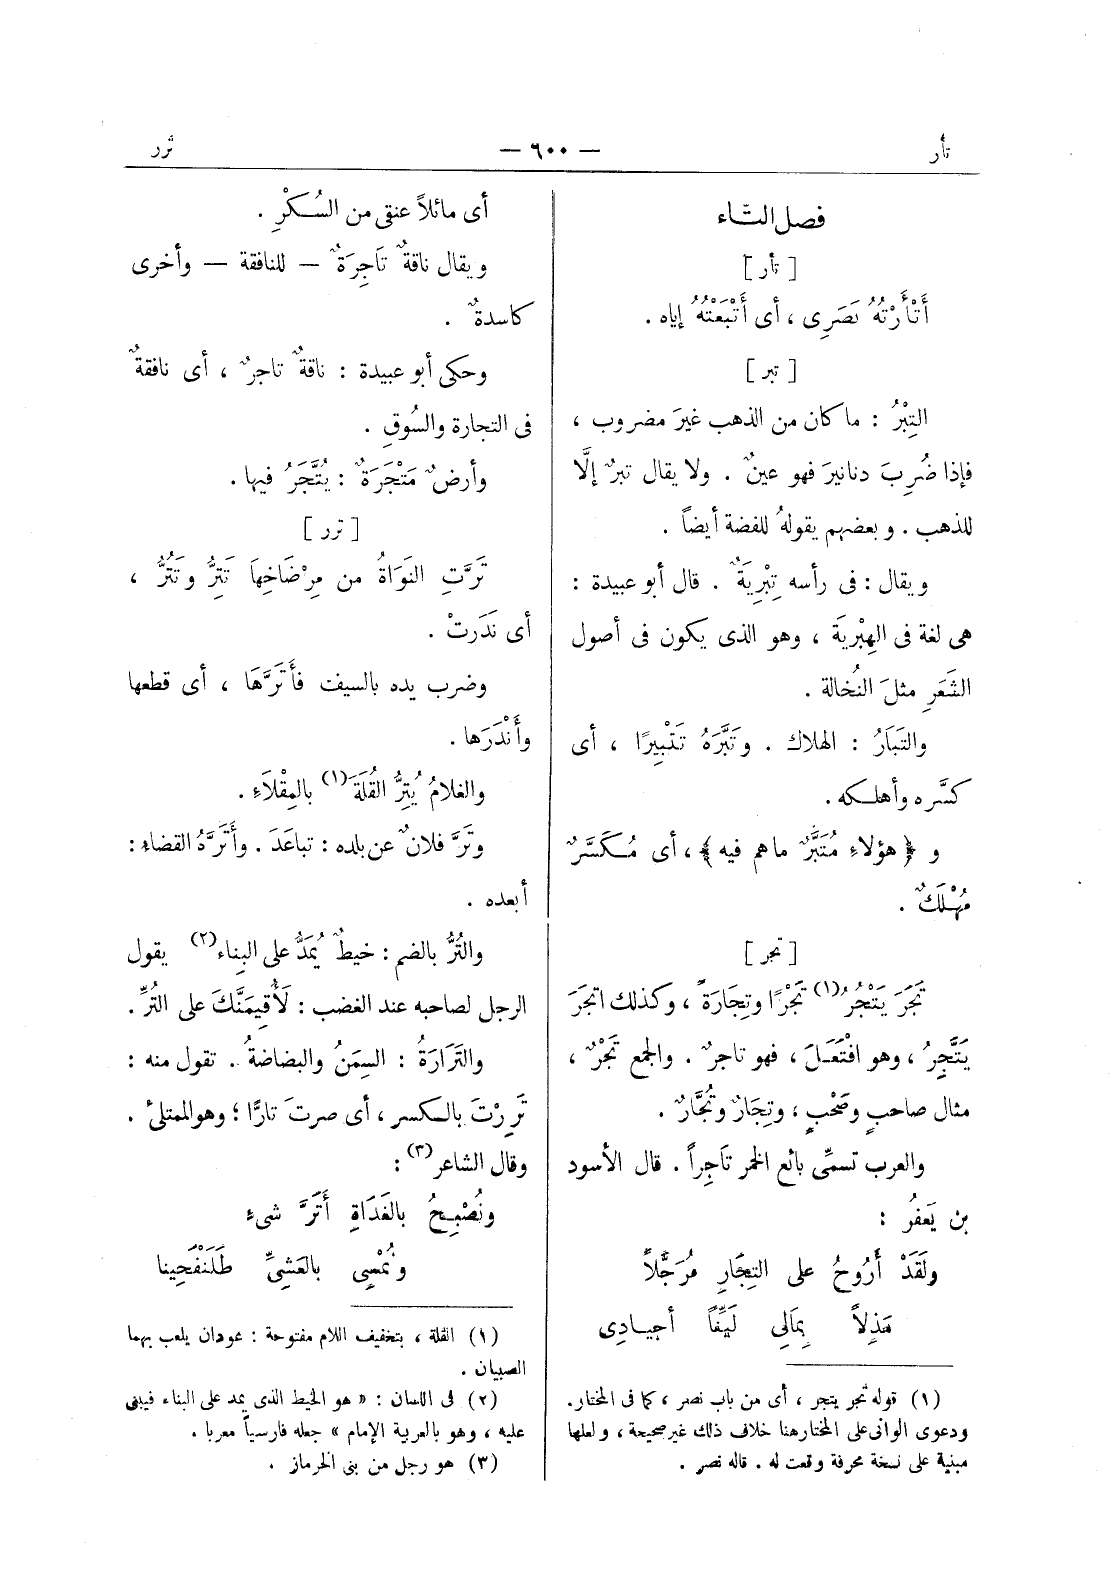 تأر — ٦٠٠ — ترر
فصل التَّاء
[ تأر ]
أَتْأَرْتُهُ بَصَرِى ، أى أَتْبَعْتُهُ إياه .
[ تبر ]
التِبْرُ : ما كان من الذهب غيرَ مضروب ،
فإذا ضُرِبَ دنانيرَ فهو عينٌ . ولا يقال تبرٌ إلَّا
للذهب . وبعضهم يقولهُ للفضة أيضاً .
ويقال : فى رأسه تِبْرِيَةٌ . قال أبو عبيدة :
هى لغة فى الهِبْرِيَة ، وهو الذى يكون فى أصول
الشَعَرِ مثلَ النُخالة .
والتَبَارُ : الهلاك . وتَبَّرَهُ تَتْبِيرًا ، أى
كسَّره وأهلكه .
و ﴿ هؤلاءِ مُتَبَّرٌ ما هم فيه ﴾ ، أى مُكَسَّرٌ
مُهْلَكٌ .
[ تجر ]
تَجَرَ يَتْجُرُ(١) تَجْرًا وتِجَارَةً ، وكذلك اتجَرَ
يَتَّجِرُ ، وهو افْتَعَلَ ، فهو تاجرٌ . والجمع تَجْرٌ ،
مثال صاحبٍ وصَحْبٍ ، وتِجَارٌ وتُجَّارٌ .
والعرب تسمِّى بائع الخمر تَاجِراً . قال الأسود
بن يَعفُر :
ولَقَدْ أَرُوحُ على التِجَارِ مُرَجَّلاً
مَذِلاً بِمَالِى لَيِّناً أجيادِى
(١) قوله تجر يتجر ، أى من باب نصر ، كما فى المختار.
ودعوى الوانى على المختار هنا خلاف ذلك غير صحيحة ، ولعلها
مبنية على نسخة محرفة وقعت له . قاله نصر .
أى مائلاً عنقى من السُكْرِ .
ويقال ناقةٌ تَاجِرَةٌ — للنافقة — وأخرى
كاسدةٌ .
وحكى أبو عبيدة : ناقةٌ تاجرٌ ، أى نافقةٌ
فى التجارة والسُوقِ .
وأرضٌ مَتْجَرَةٌ : يُتَّجَرُ فيها .
[ ترر ]
تَرَّتِ النَوَاةُ من مِرْضَاخِهَا تَتِرُّ وتَتُرُّ ،
أى نَدَرتْ .
وضرب يده بالسيف فأَتَرَّهَا ، أى قطعها
وأَنْدَرَها .
والغلامُ يُتِرُّ القُلَةَ(١) بالمِقْلَاءِ .
وتَرَّ فلانٌ عن بلده : تباعَدَ . وأَتَرَّهُ القضاء :
أبعده .
والتُرُّ بالضم : خيطٌ يُمَدُّ على البِناء(٢) يقول
الرجل لصاحبه عند الغضب : لَأُقِيمَنَّكَ على التُرِّ .
والتَرَارَةُ : السِمَنُ والبضاضةُ . تقول منه :
تَرِرْتَ بالكسر ، أى صرتَ تارًّا ؛ وهو الممتلئ .
وقال الشاعر(٣) :
ونُصْبِحُ بالغَدَاةِ أَتَرَّ شىءٍ
ونُمْسِى بالعَشىِّ طَلَنْفَحِينا
(١) القلة ، بتخفيف اللام مفتوحة : عودان يلعب بهما
الصبيان .
(٢) فى اللسان : « هو الخيط الذى يمد على البناء فيبنى
عليه ، وهو بالعربية الإمام » جعله فارسياً معربا .
(٣) هو رجل من بنى الحرماز .